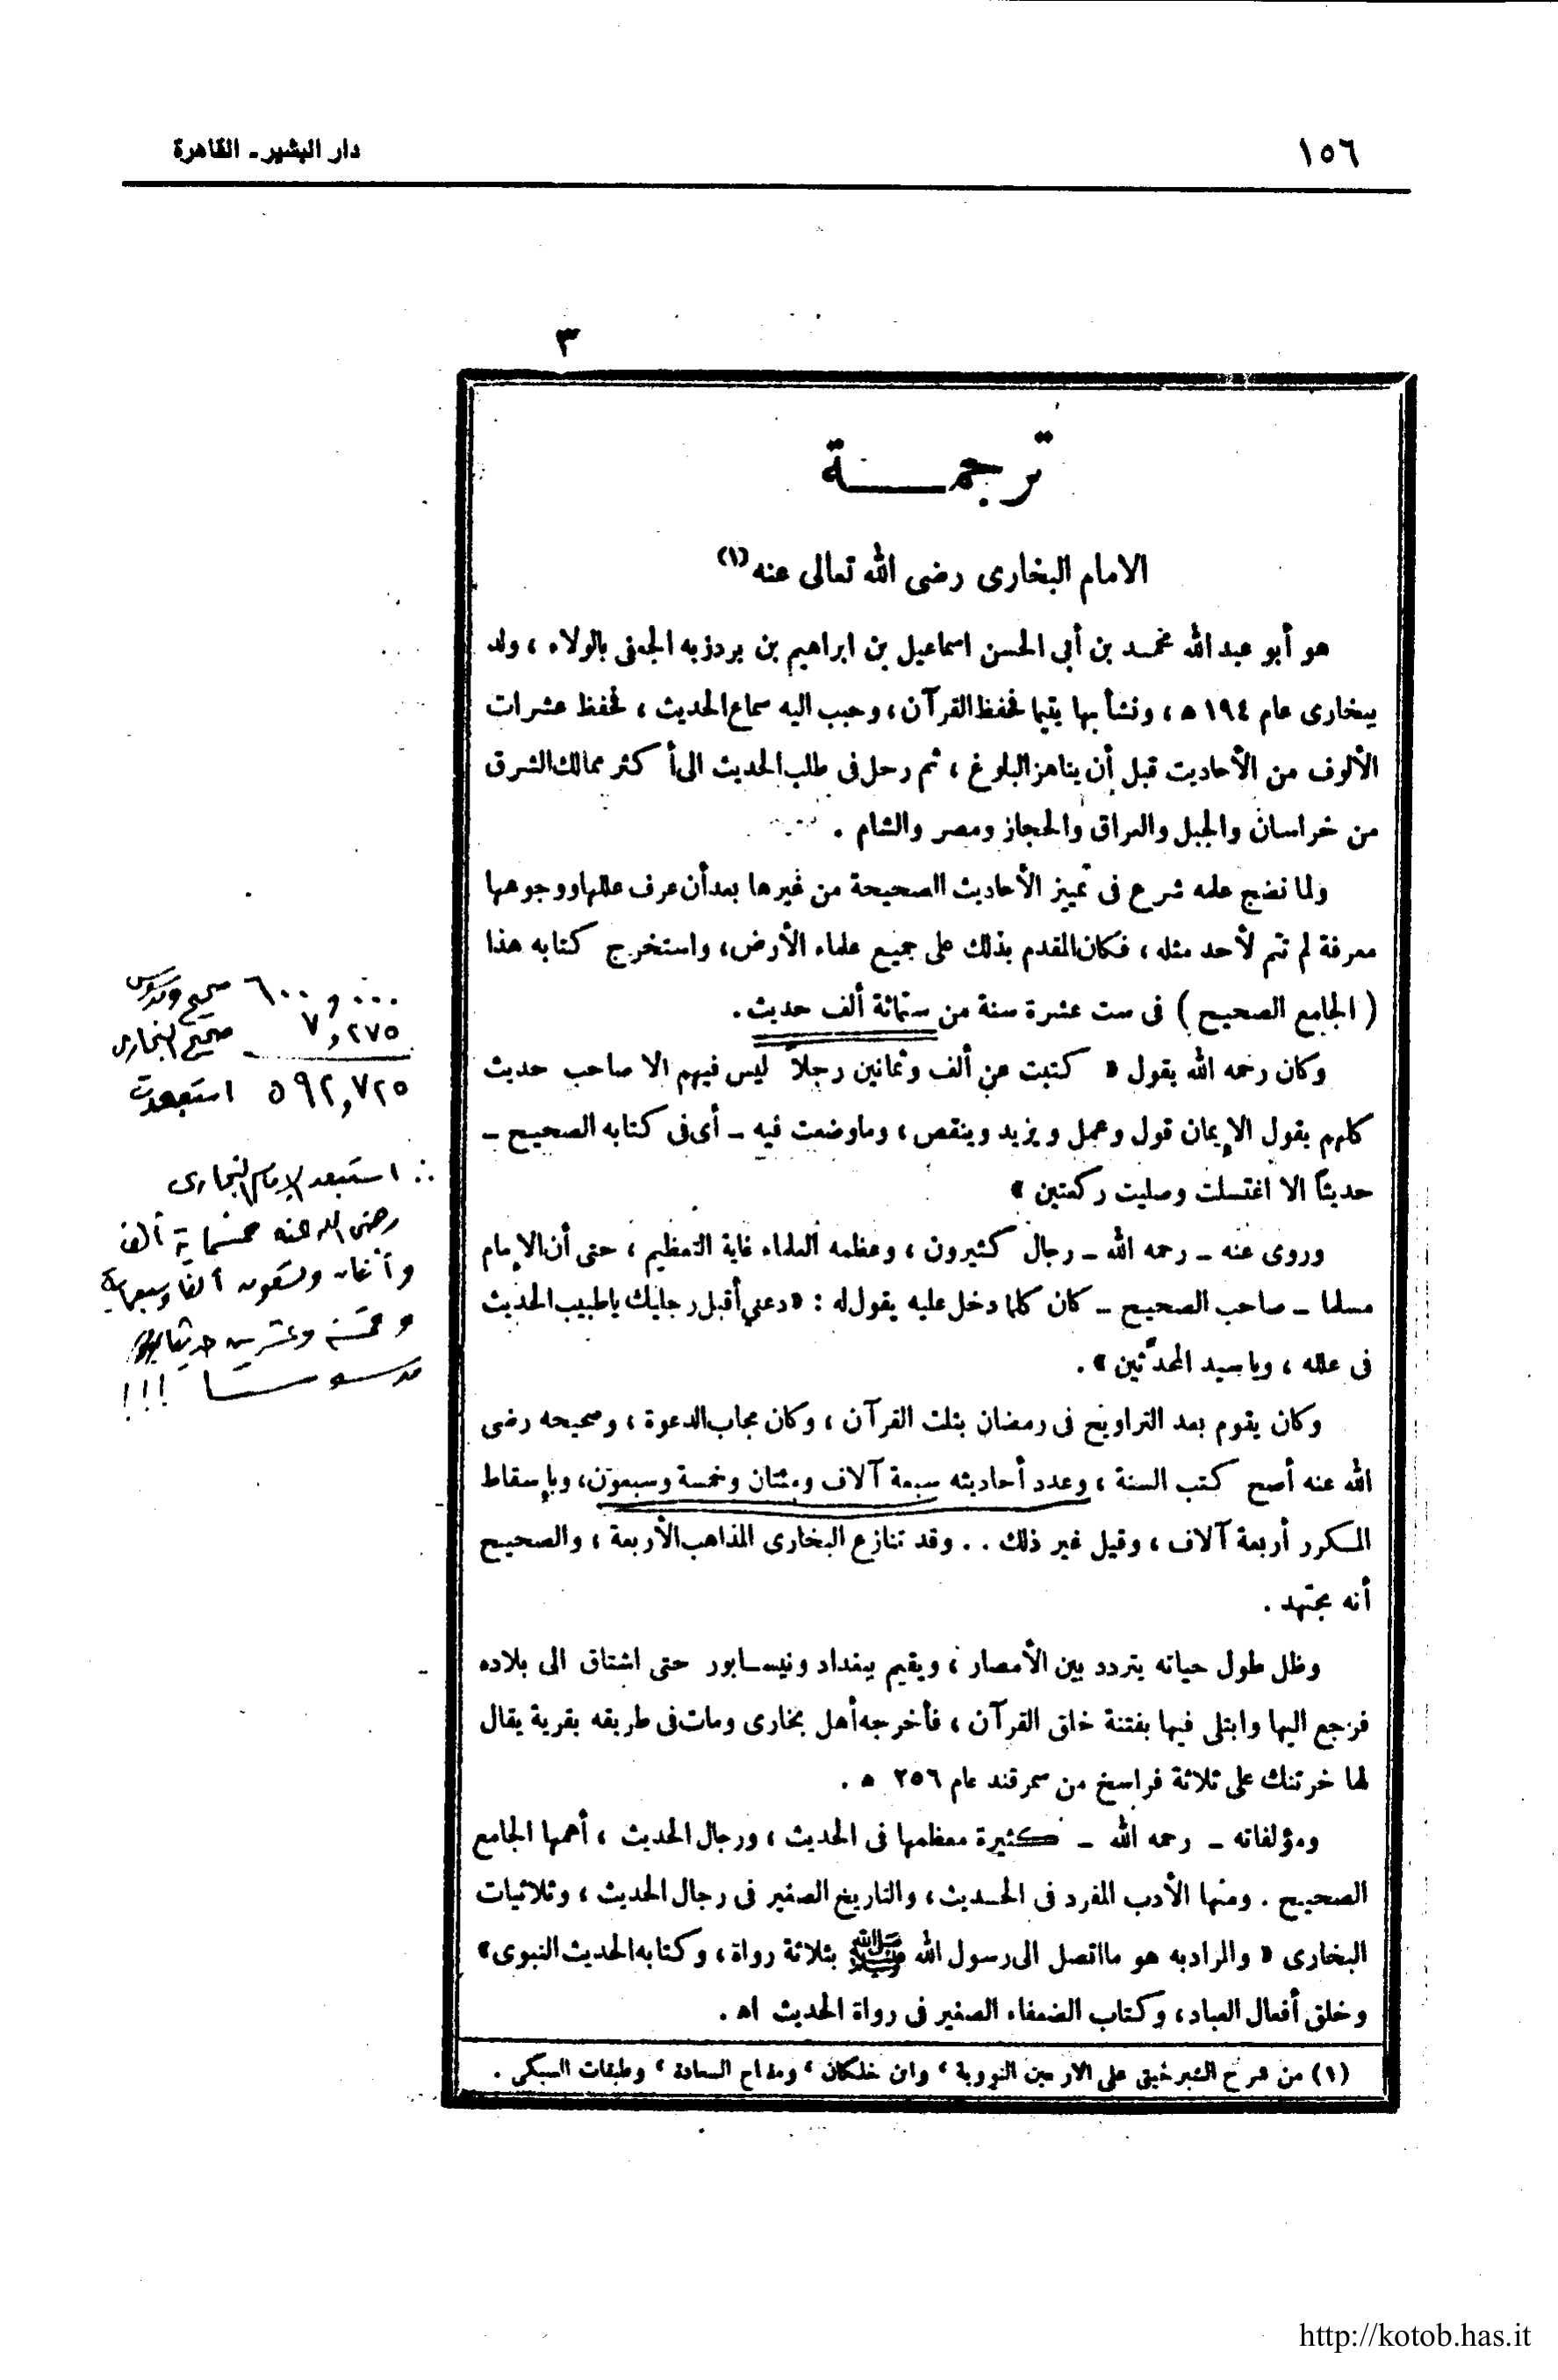 ١٥٦
دار البشير - القاهرة
٣
ترجمــــة
الامام البخارى رضى الله تعالى عنه (١)
هو أبو عبد الله محمد بن أبى الحسن اسماعيل بن ابراهيم بن بردزبه الجعفى بالولاء ، ولد
ببخارى عام ١٩٤ ه ، ونشأ بها يتيما فحفظ القرآن ، وحبب اليه سماع الحديث ، فحفظ عشرات
الألوف من الأحاديث قبل أن يناهز البلوغ ، ثم رحل فى طلب الحديث الى أكثر ممالك الشرق
من خراسان والجبل والعراق والحجاز ومصر والشام .
ولما نضج علمه شرع فى تمييز الأحاديث الصحيحة من غيرها بعد أن عرف عللها ووجوهها
معرفة لم تتم لأحد مثله ، فكان المقدم بذلك على جميع علماء الأرض ، واستخرج كتابه هذا
( الجامع الصحيح ) فى ست عشرة سنة من ستمائة ألف حديث .
وكان رحمه الله يقول « كتبت عن ألف وثمانين رجلاً ليس فيهم الا صاحب حديث
كلهم يقول الإيمان قول وعمل ويزيد وينقص ، وما وضعت فيه - أى فى كتابه الصحيح -
حديثاً الا اغتسلت وصليت ركعتين »
وروى عنه - رحمه الله - رجال كثيرون ، وعظمه العلماء غاية التعظيم ، حتى أن الإمام
مسلما - صاحب الصحيح - كان كلما دخل عليه يقول له : « دعني أقبل رجليك يا طبيب الحديث
فى علله ، ويا سيد المحدّثين » .
وكان يقوم بعد التراويح فى رمضان بثلث القرآن ، وكان مجاب الدعوة ، وصحيحه رضى
الله عنه أصح كتب السنة ، وعدد أحاديثه سبعة آلاف ومئتان وخمسة وسبعون ، وبإسقاط
المكرر أربعة آلاف ، وقيل غير ذلك . . وقد تنازع البخارى المذاهب الأربعة ، والصحيح
أنه مجتهد .
وظل طول حياته يتردد بين الأمصار ، ويقيم ببغداد ونيسابور حتى اشتاق الى بلاده
فرجع اليها وابتلى فيها بفتنة خلق القرآن ، فأخرجه أهل بخارى ومات فى طريقه بقرية يقال
لها خرتنك على ثلاثة فراسخ من سمرقند عام ٢٥٦ ه .
ومؤلفاته - رحمه الله - كثيرة معظمها فى الحديث ، ورجال الحديث ، أهمها الجامع
الصحيح . ومنها الأدب المفرد فى الحديث ، والتاريخ الصغير فى رجال الحديث ، وثلاثيات
البخارى « والمراد به هو ما اتصل الى رسول الله ﷺ بثلاثة رواة ، وكتابه الحديث النبوى »
وخلق أفعال العباد ، وكتاب الضعفاء الصغير فى رواة الحديث اه .
(١) من شرح الشبرخيتى على الاربعين النووية ، وابن خلكان ، ومفتاح السعادة ، وطبقات السبكى .
٦٠٠,٠٠٠ صحيح ومدسوس
٧,٢٧٥ صحيح البخارى
٥٩٢,٧٢٥ استبعدت
∴ استبعد الإمام البخارى
رضى الله عنه خمسماية ألف
وأثنان وتسعون ألفا وسبعماية
وخمسة وعشرين حديثا
مدسوسا !!!
http://kotob.has.it